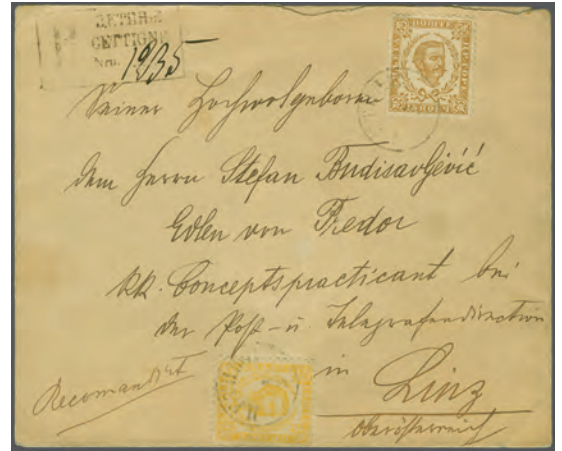 ЦЕТИЊЕ
CETTIGNE
Nro. 1935
Seiner Hochwolgeboren
dem Herrn Stefan Budisavljević
Edlen von Predor
KK. Conceptspracticant bei
der Post- u. Telegrafendirection
in
Linz
Oberösterreich
Recomandirt